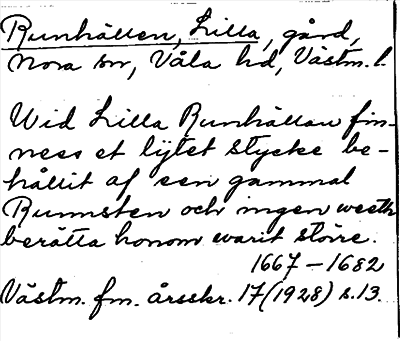 Runhällen, Lilla, gård,
Nora sn, Våla hd, Västm. l.
Wid Lilla Runhällan fin-
ness et lijtet stycke be-
hållit af een gammal
Runnsten och ingen weeth
berätta honom warit större.
1667-1682
Västm. fm. årsskr. 17 (1928) s. 13.